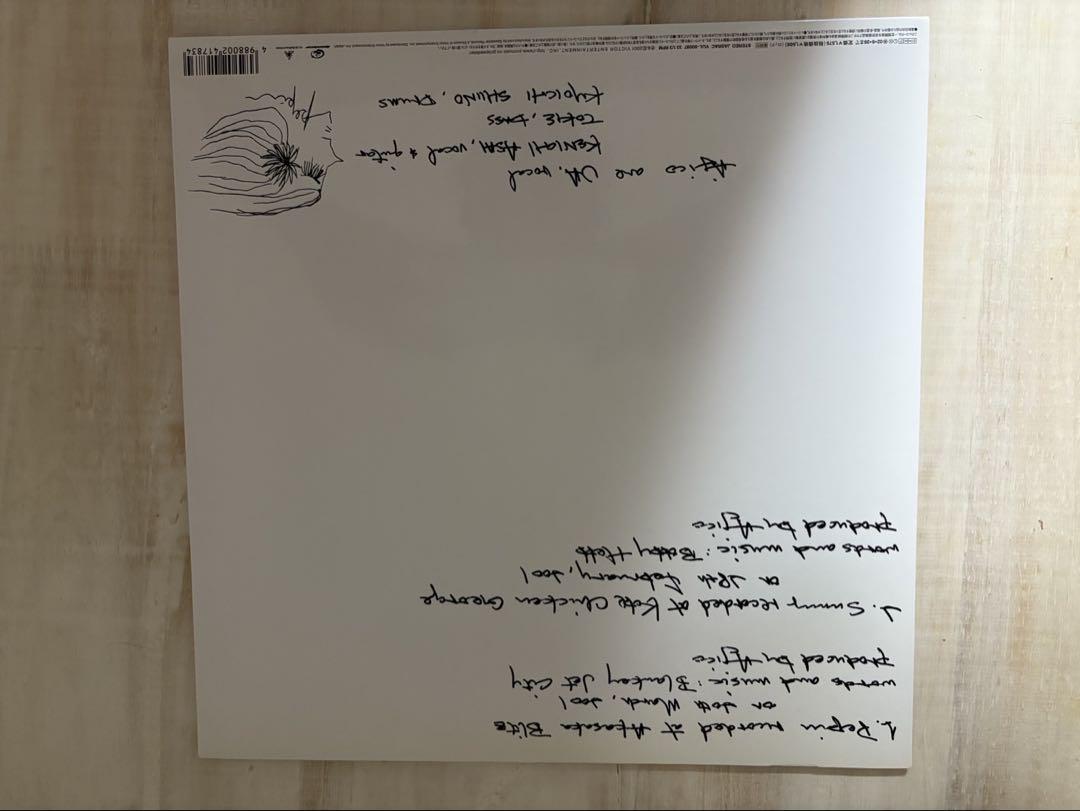 1. Pepin recorded at Akasaka Blitz
on 20th March, 2001
words and music: Blankey Jet City
produced by Ajico
2. Sunny recorded at Kobe Chicken George
on 28th February, 2001
words and music: Bobby Hebb
produced by Ajico
Ajico are UA, vocal
KENICHI ASAI, vocal & guitar
TOKIE, bass
KYOICHI SHIINO, drums
pepin
4 988002 417834